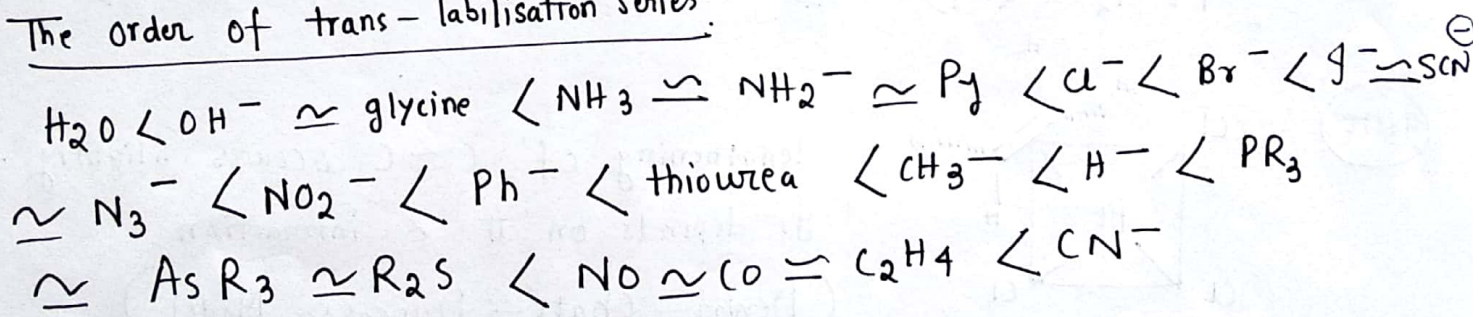 The order of trans - labilisation series.
H2O < OH⁻ ≃ glycine < NH3 ≃ NH2⁻ ≃ Py < Cl⁻ < Br⁻ < I⁻ ≃ SCN⊖
≃ N3⁻ < NO2⁻ < Ph⁻ < thiourea < CH3⁻ < H⁻ < PR3
≃ AsR3 ≃ R2S < NO ≃ CO ≃ C2H4 < CN⁻